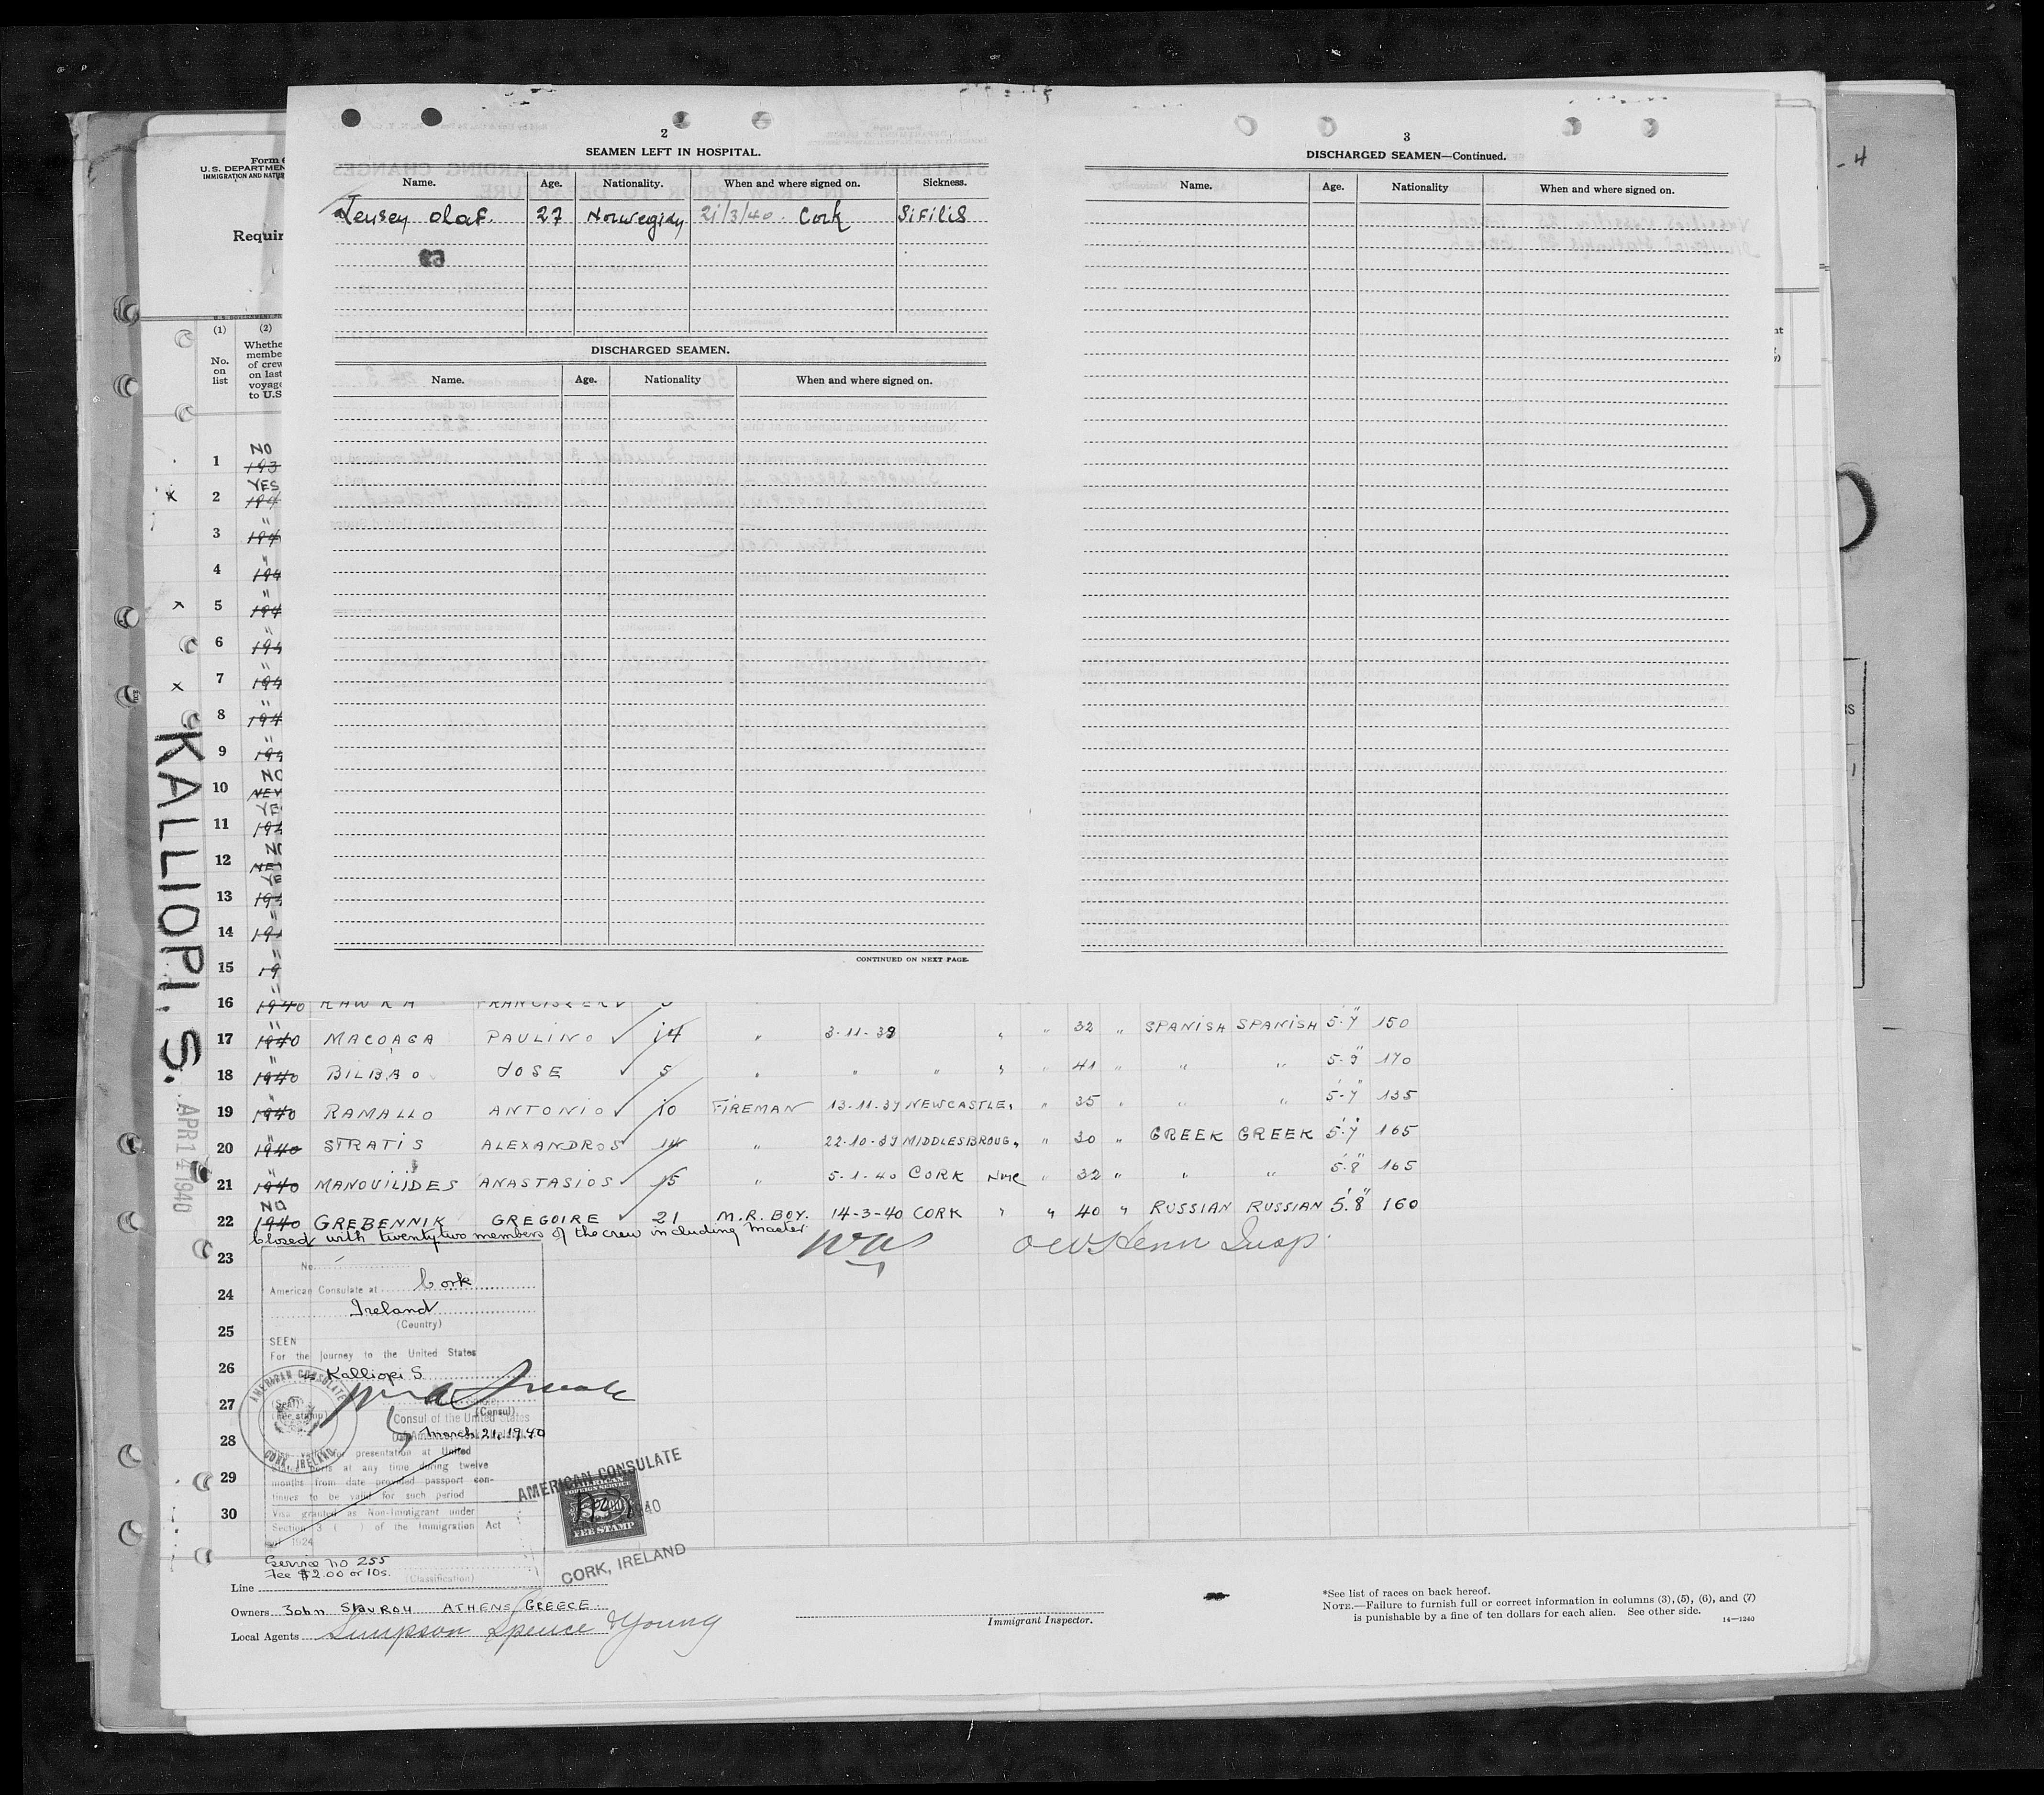 2
SEAMEN LEFT IN HOSPITAL.
Name. Age. Nationality. When and where signed on. Sickness.
Jensen Olaf. 27 Norwegian 21/3/40 Cork Sifilis
DISCHARGED SEAMEN.
Name. Age. Nationality When and where signed on.
CONTINUED ON NEXT PAGE.
3
DISCHARGED SEAMEN—Continued.
Name. Age. Nationality When and where signed on.
4
Form
U.S. DEPARTMEN
IMMIGRATION AND NATU
Requir
(1) (2)
No. on list
Whethe
membe
of crew
on last
voyage
to U.S
KALLIOPI. S.
APR 14 1940
1 NO 193
2 YES 194
3 " 194
4 " 194
5 " 194
6 " 194
7 " 194
8 " 194
9 " 194
10 NO NEV
11 YE 194
12 NO NEV
13 YE 194
14 " 194
15 " 19
16 " 1940 KAWKA FRANCISZEK
17 " 1940 MACOAGA PAULINO 14 " 3-11-39 " " 32 " SPANISH SPANISH 5'-7" 150
18 " 1940 BILBAO JOSE 5 " " " " " 41 " " " 5-9" 170
19 " 1940 RAMALLO ANTONIO 10 FIREMAN 13-11-39 NEWCASTLE " " 35 " " " 5'-7" 135
20 " 1940 STRATIS ALEXANDROS 14 " 22-10-39 MIDDLESBROUG " " 30 " GREEK GREEK 5'-7" 165
21 " 1940 MANOUILIDES ANASTASIOS 15 " 5-1-40 CORK " 32 " " " 5'-8" 165
22 NO 1940 GREBENNIK GREGOIRE 21 M.R. BOY. 14-3-40 CORK " " 40 " RUSSIAN RUSSIAN 5'.8" 160
Closed with twentytwo members of the crew including Master
23
24
25
26
27
28
29
30
No.
American Consulate at Cork
Ireland
(Country)
SEEN
For the journey to the United States
Kalliopi S.
(Consul)
Consul of the United States
March 21, 1940
AMERICAN CONSULATE
CORK, IRELAND
(Seal)
(Fee stamp)
for presentation at United
ports at any time during twelve
months from date provided passport con-
tinues to be valid for such period
Visa granted as Non-Immigrant under
Section 3 ( ) of the Immigration Act
of 1924
Service no 255
Fee $2.00 or 10s.
(Classification)
AMERICAN CONSULATE
AMERICAN
FOREIGN SERVICE
FEE STAMP
CORK, IRELAND
Line
Owners John Stavrou ATHENS/GREECE.
Local Agents Simpson Spence & Young
Immigrant Inspector.
*See list of races on back hereof.
NOTE.—Failure to furnish full or correct information in columns (3), (5), (6), and (7)
is punishable by a fine of ten dollars for each alien. See other side.
14—1240